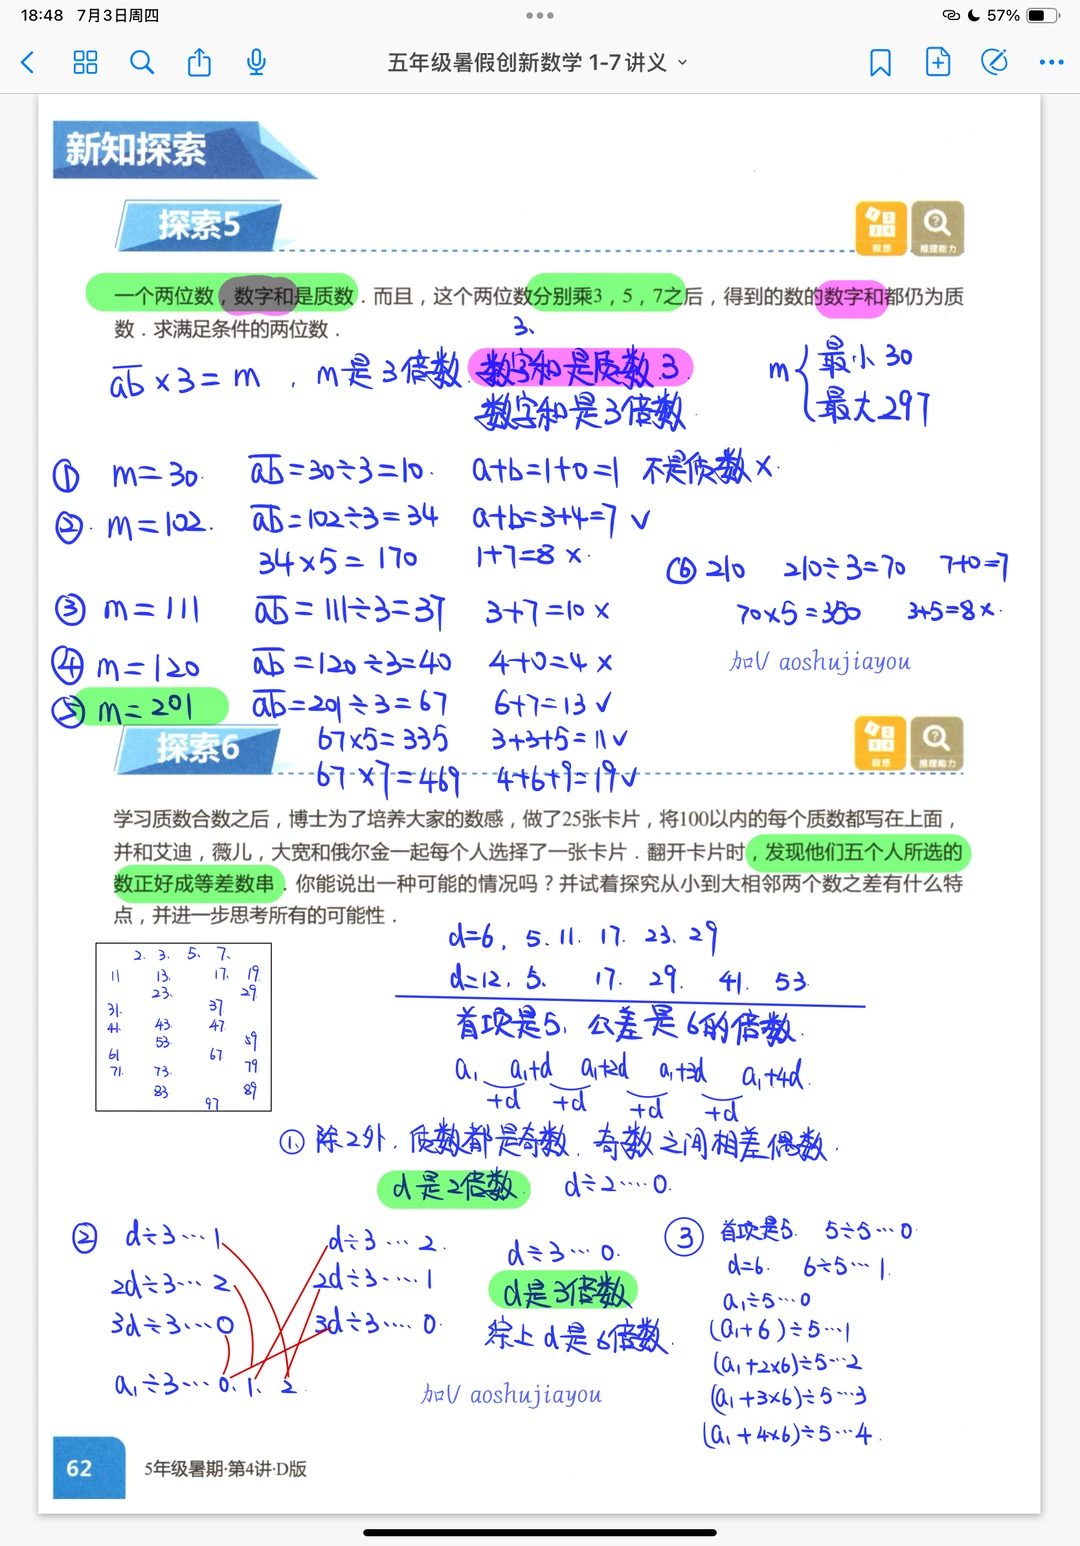 18:48 7月3日周四
57%
五年级暑假创新数学 1-7讲义
新知探索
探索5
数感
推理能力
一个两位数，数字和是质数．而且，这个两位数分别乘3，5，7之后，得到的数的数字和都仍为质
数．求满足条件的两位数．
3、
ab × 3 = m ，m是3倍数．数字和是质数 3
数字和是3倍数
m { 最小30
最大297
① m=30. ab=30÷3=10. a+b=1+0=1 不是质数×.
②. m=102. ab=102÷3=34 a+b=3+4=7 ✓
34×5=170 1+7=8 ×.
③ m=111 ab=111÷3=37 3+7=10 ×
④ m=120 ab=120÷3=40 4+0=4 ×
⑤ m=201 ab=201÷3=67 6+7=13 ✓
67×5=335 3+3+5=11 ✓
67×7=469 4+6+9=19 ✓
⑥ 210 210÷3=70 7+0=7
70×5=350 3+5=8 ×.
加V aoshujiayou
探索6
数感
推理能力
学习质数合数之后，博士为了培养大家的数感，做了25张卡片，将100以内的每个质数都写在上面，
并和艾迪，薇儿，大宽和俄尔金一起每个人选择了一张卡片．翻开卡片时，发现他们五个人所选的
数正好成等差数串．你能说出一种可能的情况吗？并试着探究从小到大相邻两个数之差有什么特
点，并进一步思考所有的可能性．
2. 3. 5. 7.
11 13. 17. 19.
23. 29.
31. 37
41. 43. 47.
53. 59
61 67
71. 73. 79
83 89
97
d=6, 5. 11. 17. 23. 29
d=12. 5. 17. 29. 41. 53.
首项是5，公差是6的倍数.
a₁ a₁+d a₁+2d a₁+3d a₁+4d.
+d +d +d +d
① 除2外．质数都是奇数．奇数之间相差偶数.
d是2倍数. d÷2…0.
② d÷3…1 d÷3…2. d÷3…0.
2d÷3…2 2d÷3…1 d是3倍数
3d÷3…0 3d÷3…0. 综上d是6倍数.
a₁÷3…0. 1. 2.
③ 首项是5. 5÷5…0
d=6. 6÷5…1.
a₁÷5…0
(a₁+6)÷5…1
(a₁+2×6)÷5…2
(a₁+3×6)÷5…3
(a₁+4×6)÷5…4.
加V aoshujiayou
62
5年级暑期·第4讲·D版